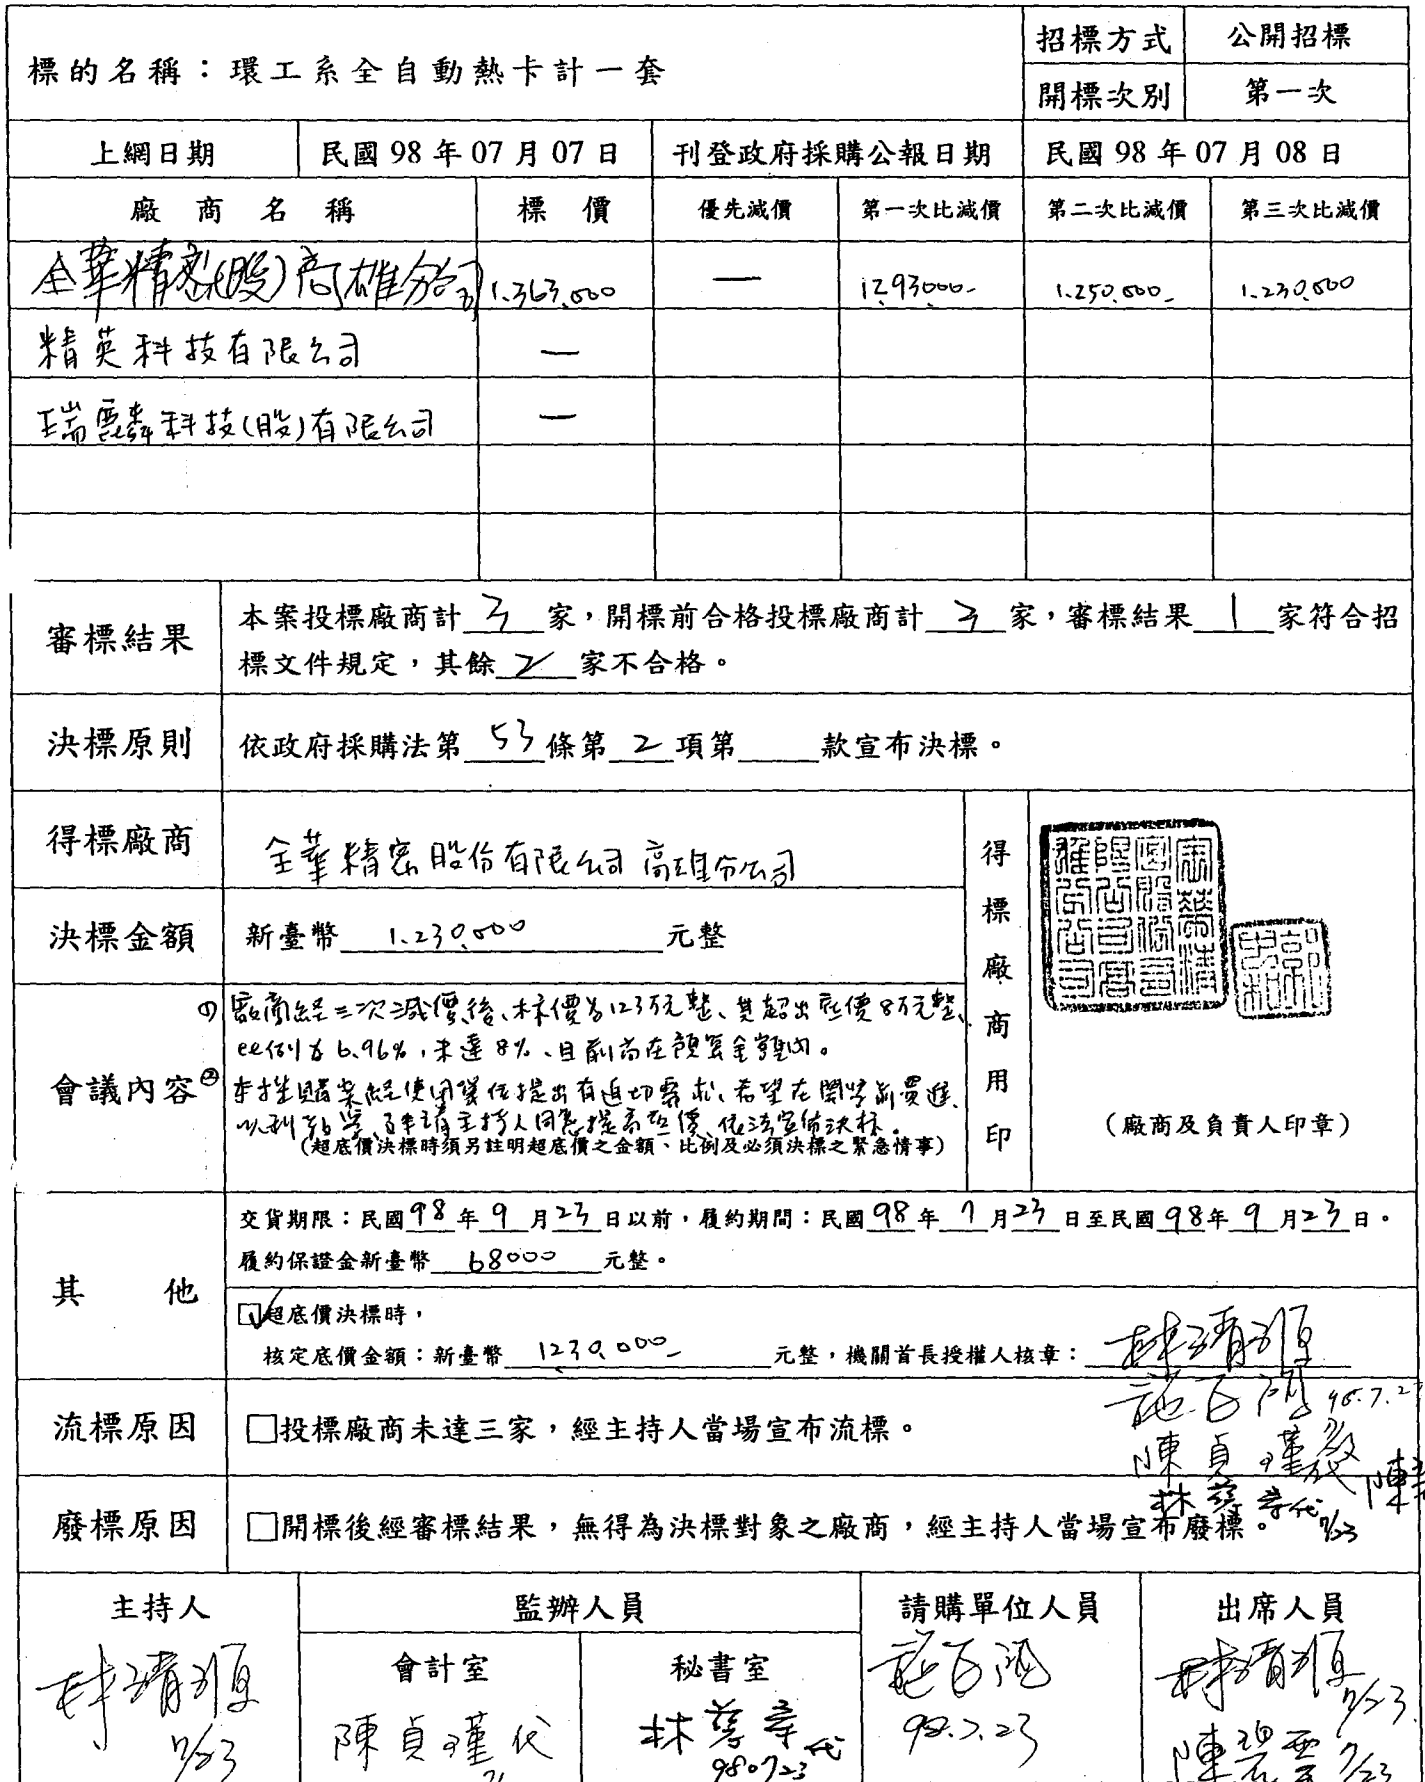 標的名稱：環工系全自動熱卡計一套
招標方式 公開招標
開標次別 第一次
上網日期 民國 98 年 07 月 07 日 刊登政府採購公報日期 民國 98 年 07 月 08 日
廠商名稱 標價 優先減價 第一次比減價 第二次比減價 第三次比減價
全華精密(股)高雄分公司 1.363.000 — 1293000- 1.250.000- 1.230.000
精英科技有限公司 —
瑞麟科技(股)有限公司 —
審標結果 本案投標廠商計 3 家，開標前合格投標廠商計 3 家，審標結果 1 家符合招
標文件規定，其餘 2 家不合格。
決標原則 依政府採購法第 53 條第 2 項第 款宣布決標。
得標廠商 全華精密股份有限公司 高雄分公司
決標金額 新臺幣 1.230.000 元整
得標廠商用印
(廠商及負責人印章)
會議內容
① 廠商經三次減價後、標價為123万元整、其超出底價8万元整、
比例為6.96%，未達8%、且前尚在預算金額內。
② 本採購案經使用單位提出有迫切需求、希望在開學前買進、
以利教學、主持人同意提高底價、依法宣佈決標。
(超底價決標時須另註明超底價之金額、比例及必須決標之緊急情事)
其他 交貨期限：民國 98 年 9 月 23 日以前，履約期間：民國 98 年 7 月 23 日至民國 98 年 9 月 23 日。
履約保證金新臺幣 68000 元整。
☑超底價決標時，
核定底價金額：新臺幣 1230,000- 元整，機關首長授權人核章： 林清順
98.7.2
陳貞瑾代
林 代 7/23
陳
流標原因 □投標廠商未達三家，經主持人當場宣布流標。
廢標原因 □開標後經審標結果，無得為決標對象之廠商，經主持人當場宣布廢標。
主持人 監辦人員 請購單位人員 出席人員
會計室 秘書室
林清順 7/23
陳貞瑾代
林 代 980723
98.7.23
林清順 7/23
陳碧雲 7/23